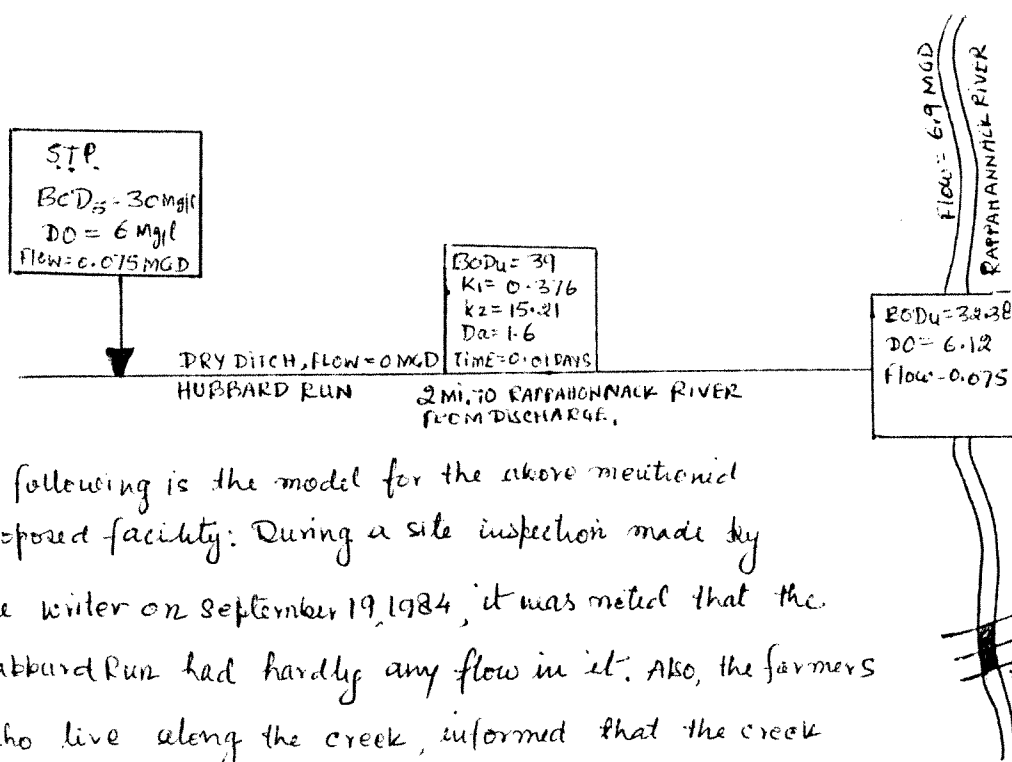 S.T.P.
BOD5 - 30 Mg/l
DO = 6 Mg/l
Flow = 0.075 MGD
BODu = 39
K1 = 0.376
k2 = 15.21
Da = 1.6
TIME = 0.01 DAYS
DRY DITCH, FLOW = 0 MGD
HUBBARD RUN
2 MI. TO RAPPAHONNACK RIVER
FROM DISCHARGE.
Flow = 6.9 MGD
RAPPAHANNACK RIVER
BODu = 32.38
DO = 6.12
Flow - 0.075
following is the model for the above mentioned
oposed facility: During a site inspection made by
e writer on September 19, 1984, it was noted that the
abbard Run had hardly any flow in it. Also, the farmers
ho live along the creek, informed that the creek